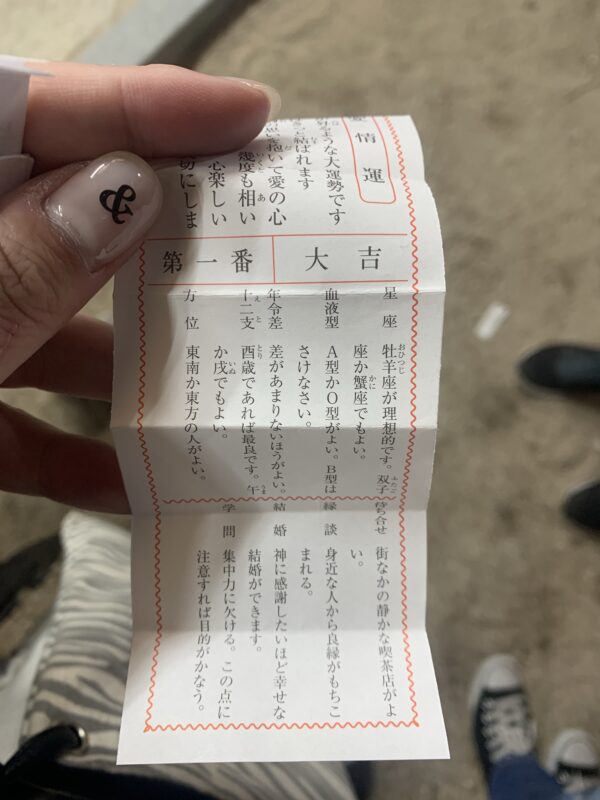 情運
ような大運勢です
と結ばれます
抱いて愛の心
幾度も相い
心楽しい
切にしま
第一番
大吉
星座
牡羊座が理想的です。双子
座か蟹座でもよい。
血液型
A型かO型がよい。B型は
さけなさい。
年令差
差があまりないほうがよい。
十二支
酉歳であれば最良です。午
か戌でもよい。
方位
東南か東方の人がよい。
待ち合せ
街なかの静かな喫茶店がよ
い。
縁談
身近な人から良縁がもちこ
まれる。
結婚
神に感謝したいほど幸せな
結婚ができます。
学問
集中力に欠ける。この点に
注意すれば目的がかなう。
&